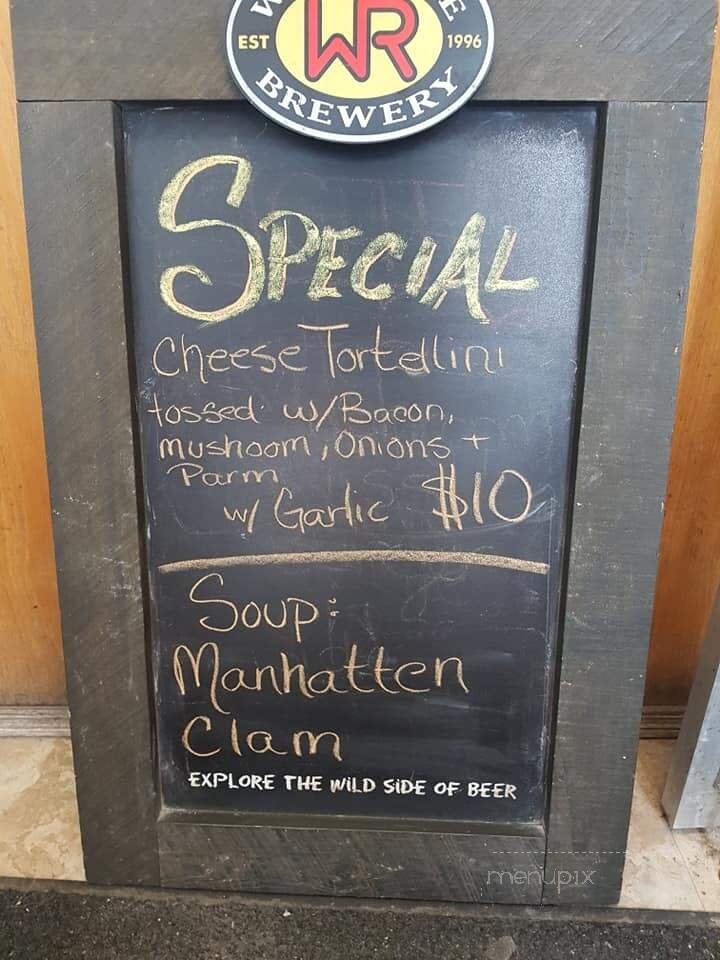 EST WR 1996
BREWERY
SPECIAL
Cheese Tortellini
tossed w/Bacon,
mushoom, Onions +
Parm
w/ Garlic $10
Soup:
Manhatten
Clam
EXPLORE THE WILD SIDE OF BEER
menupix